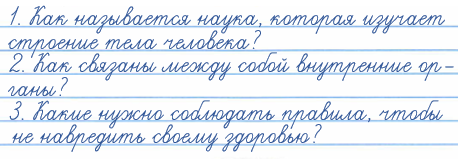 1. Как называется наука, которая изучает
строение тела человека?
2. Как связаны между собой внутренние ор-
ганы?
3. Какие нужно соблюдать правила, чтобы
не навредить своему здоровью?